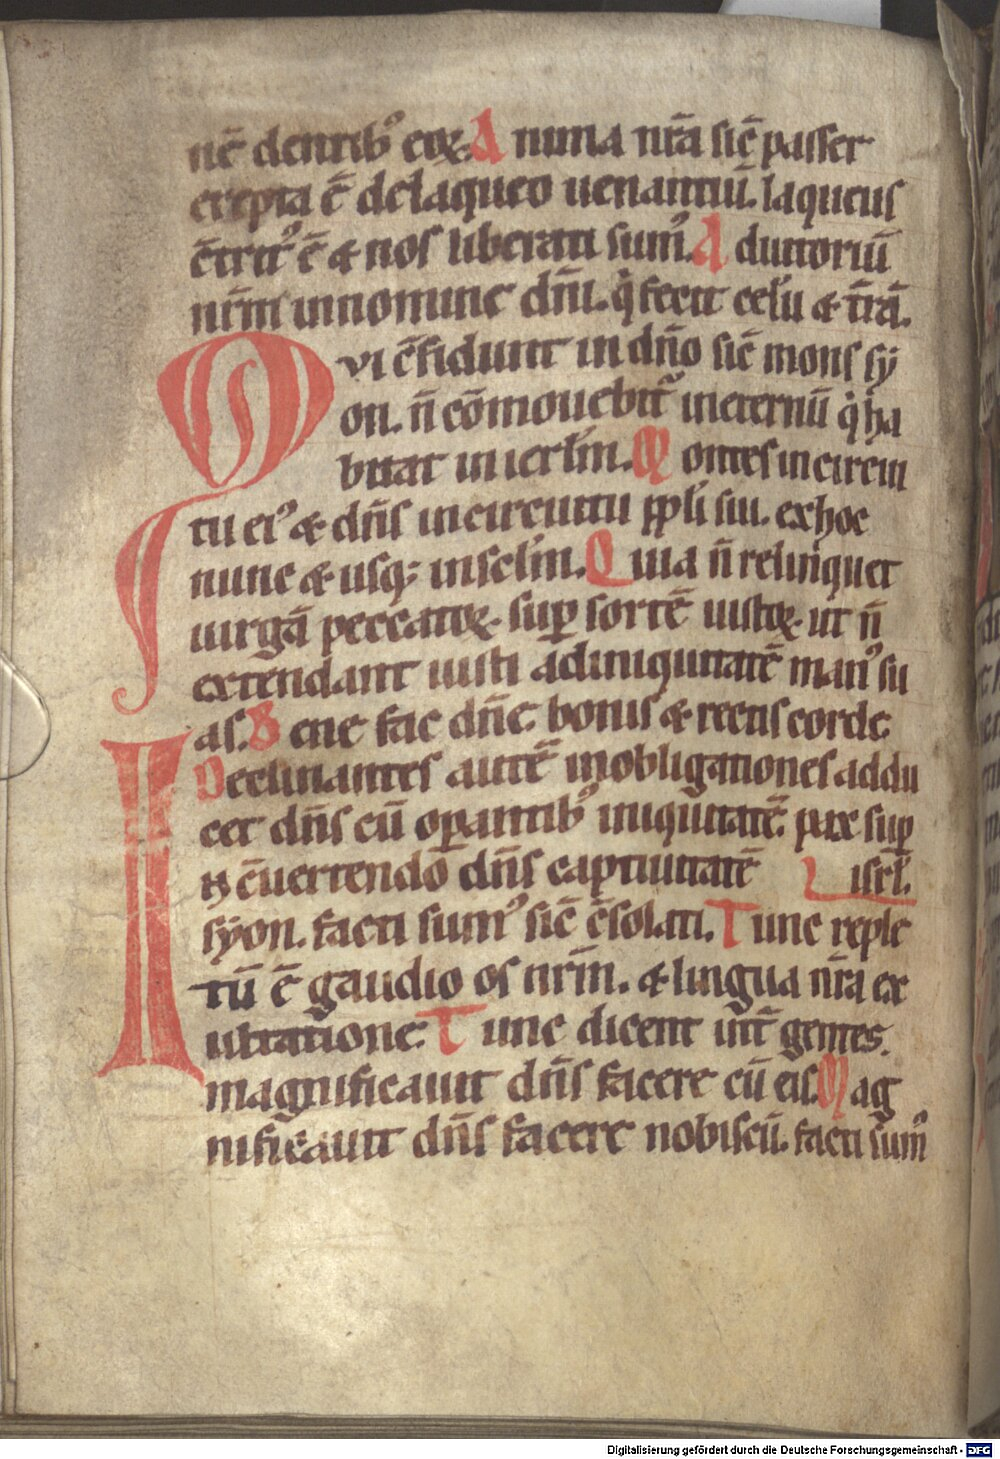 nē dentib᾽ eoꝝ. A nima nr̄a sic̄ passer
erepta ē de laqueo uenantiū. laqueus
c̄trit᾽ ē & nos liberati sum᾽. A diutoriū
nr̄m in nomine dn̄i. q̇ fecit celū & t̄rā.
Qvi c̄fidunt in dn̄o sic̄ mons sy
on. n̄ cōmouebit᷑ in eternū q̇ ha
bitat in ierl̄m. Montes in circui
tu ei᾽ & dn̄s in circuitu ppl̄i sui. ex hoc
nunc & usq; in sclm̄. Quia n̄ relinquet
uirgā peccatoꝝ. suꝑ sortē iustoꝝ. ut n̄
extendant iusti ad iniquitatē man᾽ su
as. Bene fac dn̄e bonis & rectis corde
Declinantes autē in obligationes addu
cet dn̄s cū oꝑantib᾽ iniquitatē. pax suꝑ
isrl̄.
In c̄uertendo dn̄s captiuitatē
syon. facti sum᾽ sic̄ c̄solati. Tunc reple
tū ē gaudio os nr̄m. & lingua nr̄a ex
ultatione. Tunc dicent int᷑ gentes.
magnificauit dn̄s facere cū eis. Mag
nificauit dn̄s facere nobiscū. facti sum᾽
Digitalisierung gefördert durch die Deutsche Forschungsgemeinschaft - DFG